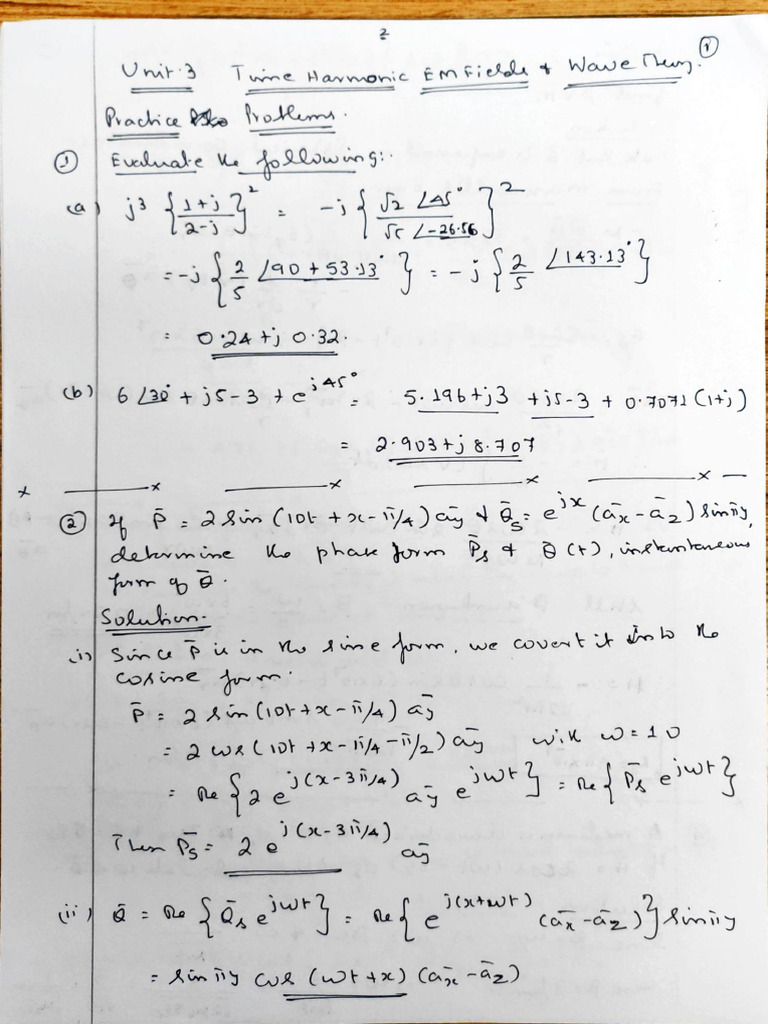 2
①
Unit.3 Time Harmonic EM Fields & Wave Theory.
Practice Problems.
① Evaluate the following:.
(a) j3 {1+j/2-j}² = -j {√2 ∠45°/√5 ∠-26.56}²
= -j {2/5 ∠90 + 53.13°} = -j {2/5 ∠143.13°}
= 0.24 + j 0.32.
(b) 6∠30° + j5 - 3 + e^j45° = 5.196 + j3 + j5 - 3 + 0.7071 (1+j)
= 2.903 + j 8.707
x ——x ——x ——x ——x —
② If P̄ = 2 sin (10t + x - π/4) āy & Q̄s = e^jx (āx - āz) sin πy,
determine the phase form P̄s & Q(t), instantaneous
form of Q̄.
Solution.
(i) Since P̄ is in the sine form, we covert it into the
cosine form.
P̄ = 2 sin (10t + x - π/4) āy
= 2 cos (10t + x - π/4 - π/2) āy with ω = 10
= Re {2 e^j(x - 3π/4) āy e^jωt} = Re {P̄s e^jωt}
Then P̄s = 2 e^j(x - 3π/4) āy
(ii) Q̄ = Re {Q̄s e^jωt} = Re {e^j(x+ωt) (āx - āz)} sin πy
= sin πy cos (ωt + x) (āx - āz)